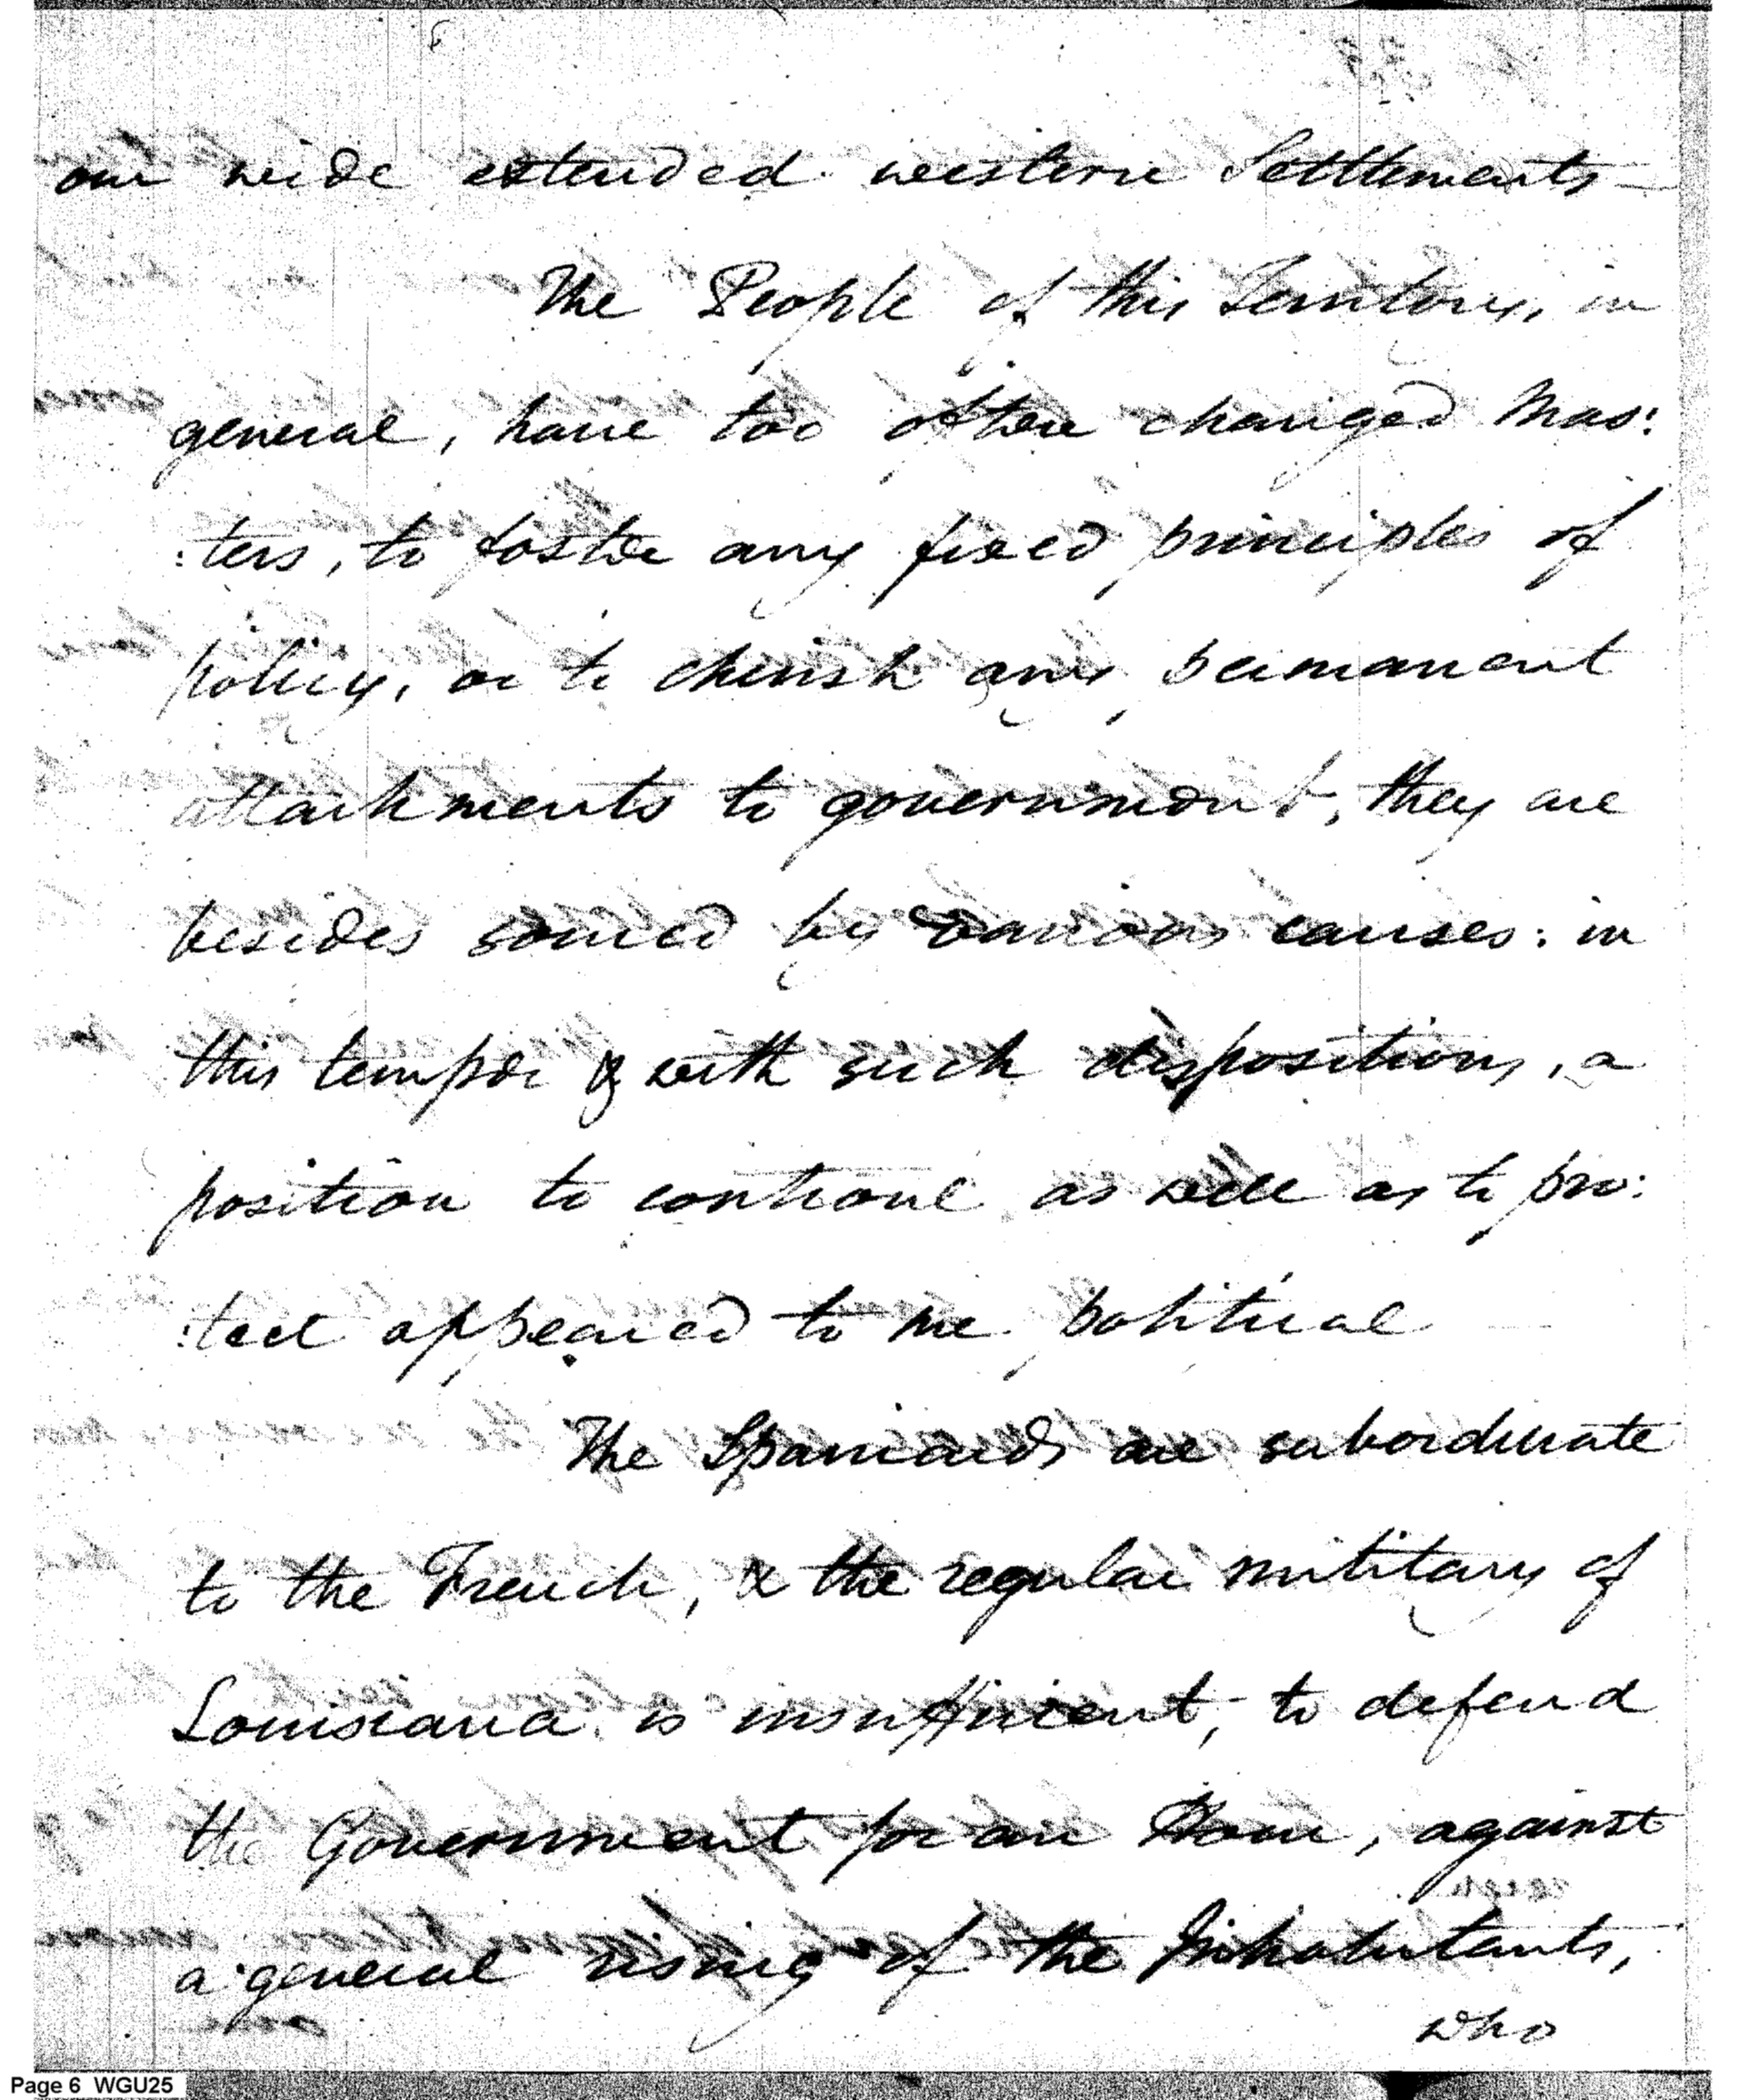 6
our wide extended western Settlements —
The People of this Territory, in
general, have too often changed Mas:
:ters, to foster any fixed principles of
policy, or to cherish any permanent
attachments to government, they are
besides soured by various causes: in
this temper & with such dispositions, a
position to controul as well as to pro:
:tect appeared to me political
The Spaniards are subordinate
to the French, & the regular military of
Louisiana is insufficient, to defend
the Government for an Hour, against
a general rising of the Inhabitants,
who
Page 6 WGU25